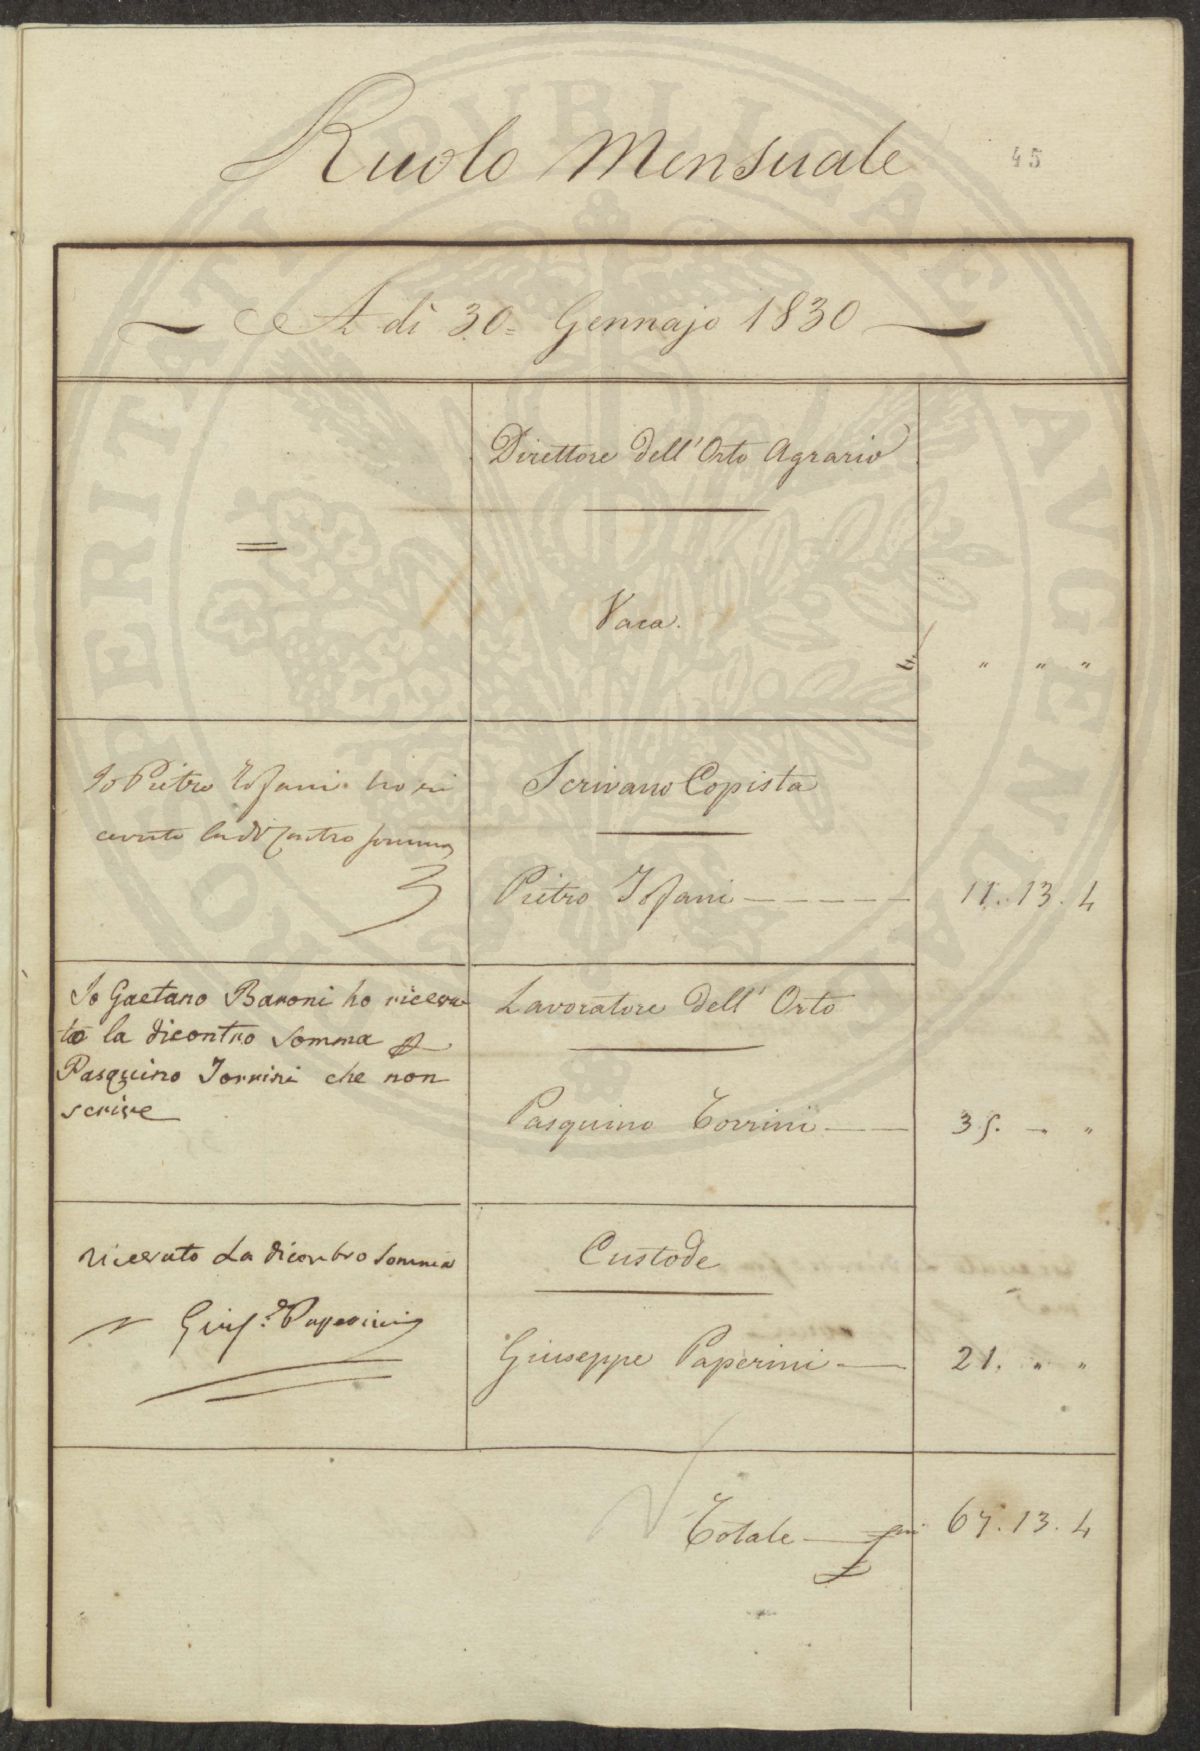 Ruolo Mensuale
45
A dì 30= Gennajo 1830
Direttore dell'Orto Agrario
=
Vaca.
" " "
Io Pietro Tofani ho ri
cevuto la di contro somma
Scrivano Copista
Pietro Tofani — — — — — 11. 13. 4
Io Gaetano Baroni ho ricevu
to la dicontro somma p
Pasquino Torrini che non
scrive
Lavoratore dell' Orto
Pasquino Torrini — — 35. — "
ricevuto La dicontro Somma
Giuse. Paperini
Custode
Giuseppe Paperini — 21. " "
Totale — 67. 13. 4
PVBLICAE AVGENDAE
PROSPERITATI